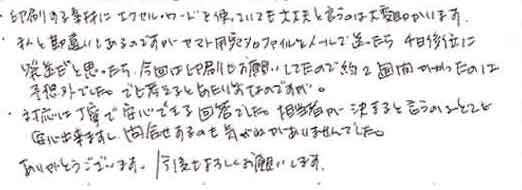 ・印刷する素材にエクセル・ワードを使っていても大丈夫と言うのは大変助かります。
・私の勘違いもあるのですが ヤマト 完ファイルをメールで送ったら 4日後位に
発送だと思ったら、今回は印刷もお願いしてたので約2週間かかったのは
予想外でした。でも考えるとあたり前なのですが。
・対応は丁寧で安心できる回答でした。担当者が決まると言うのことで
安心出来ますし、問合せするのも気がねがありませんでした。
ありがとうございます。今後もよろしくお願いします。